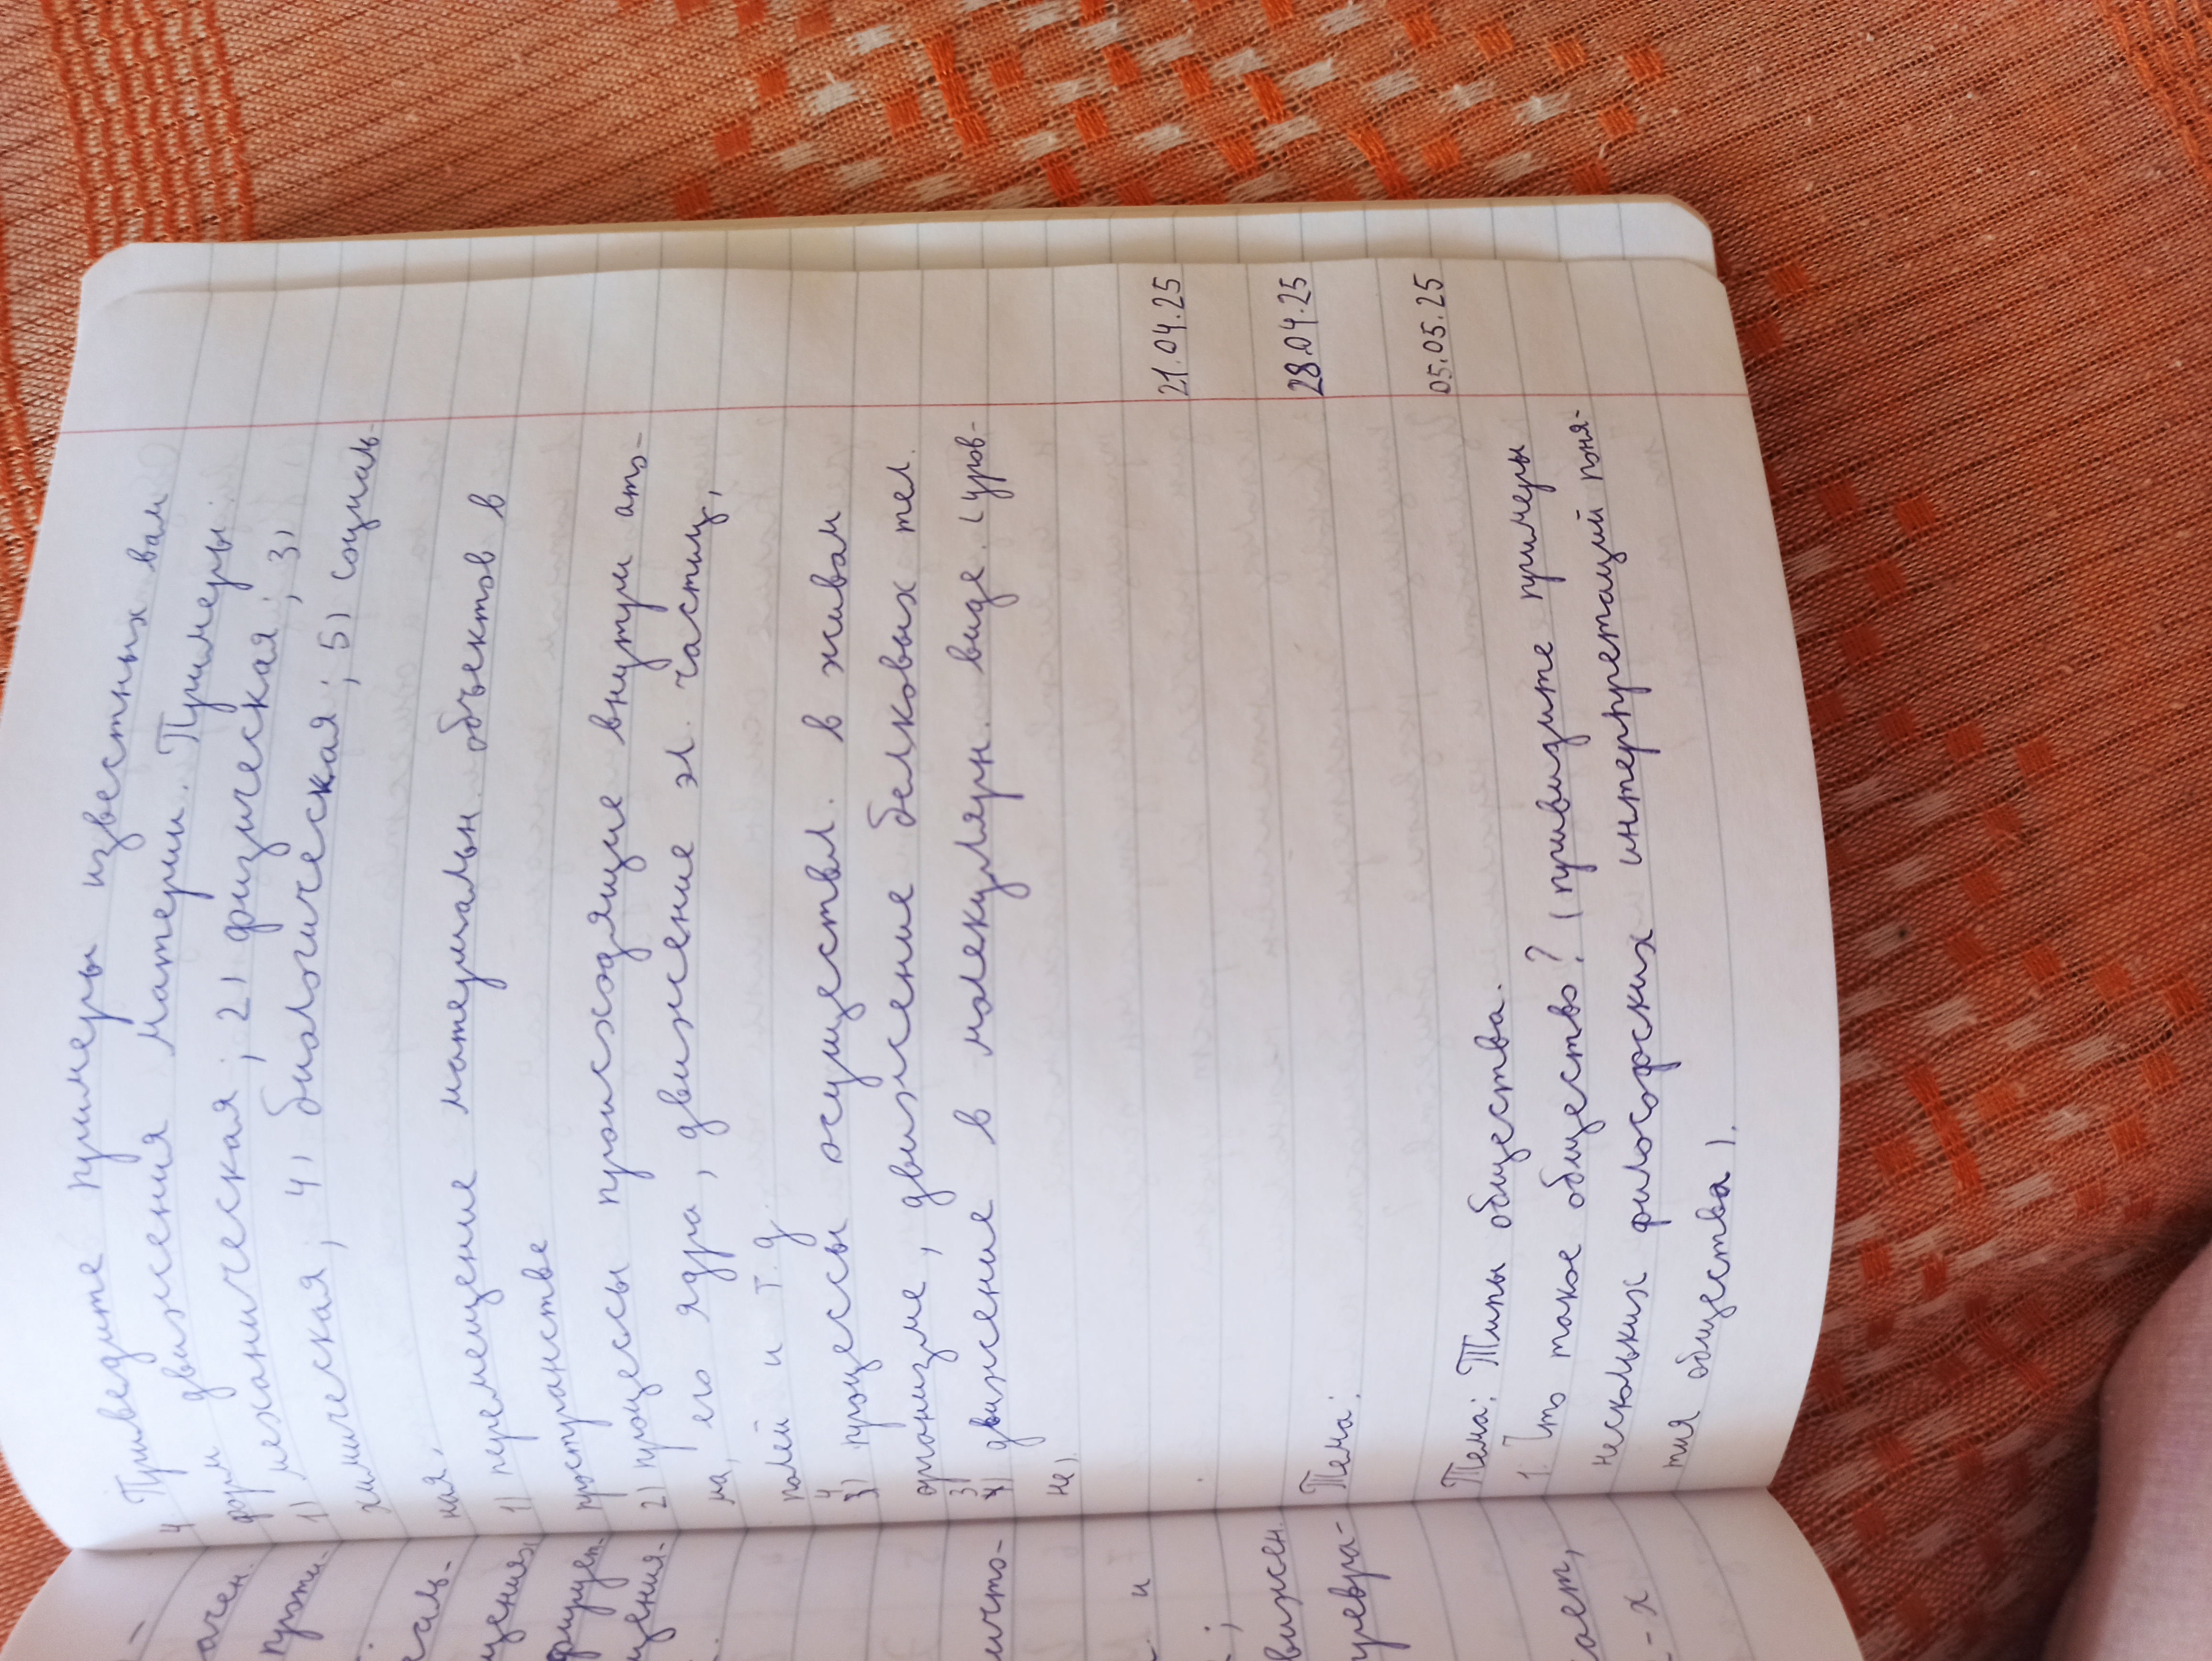 4. Приведите примеры известных вам
форм движения материи. Примеры:
1) механическая; 2) физическая; 3)
химическая; 4) биологическая; 5) социаль-
ная.
1) перемещение материальн. объектов в
пространстве
2) процессы происходящие внутри ато-
ма, его ядра, движение эл. частиц,
полей и т. д.
4) процессы осуществл. в живом
организме, движение белковых тел.
3) движение в молекулярн. виде. (уров-
не).
21.04.25
Тема: 28.04.25
05.05.25
Тема: Типы общества.
1. Что такое общество? (приведите примеры
нескольких философских интерпретаций поня-
тия общества).
ачен.
аль-
щения
щения.
ично-
и
вижен.
ревра-
ает,
- х